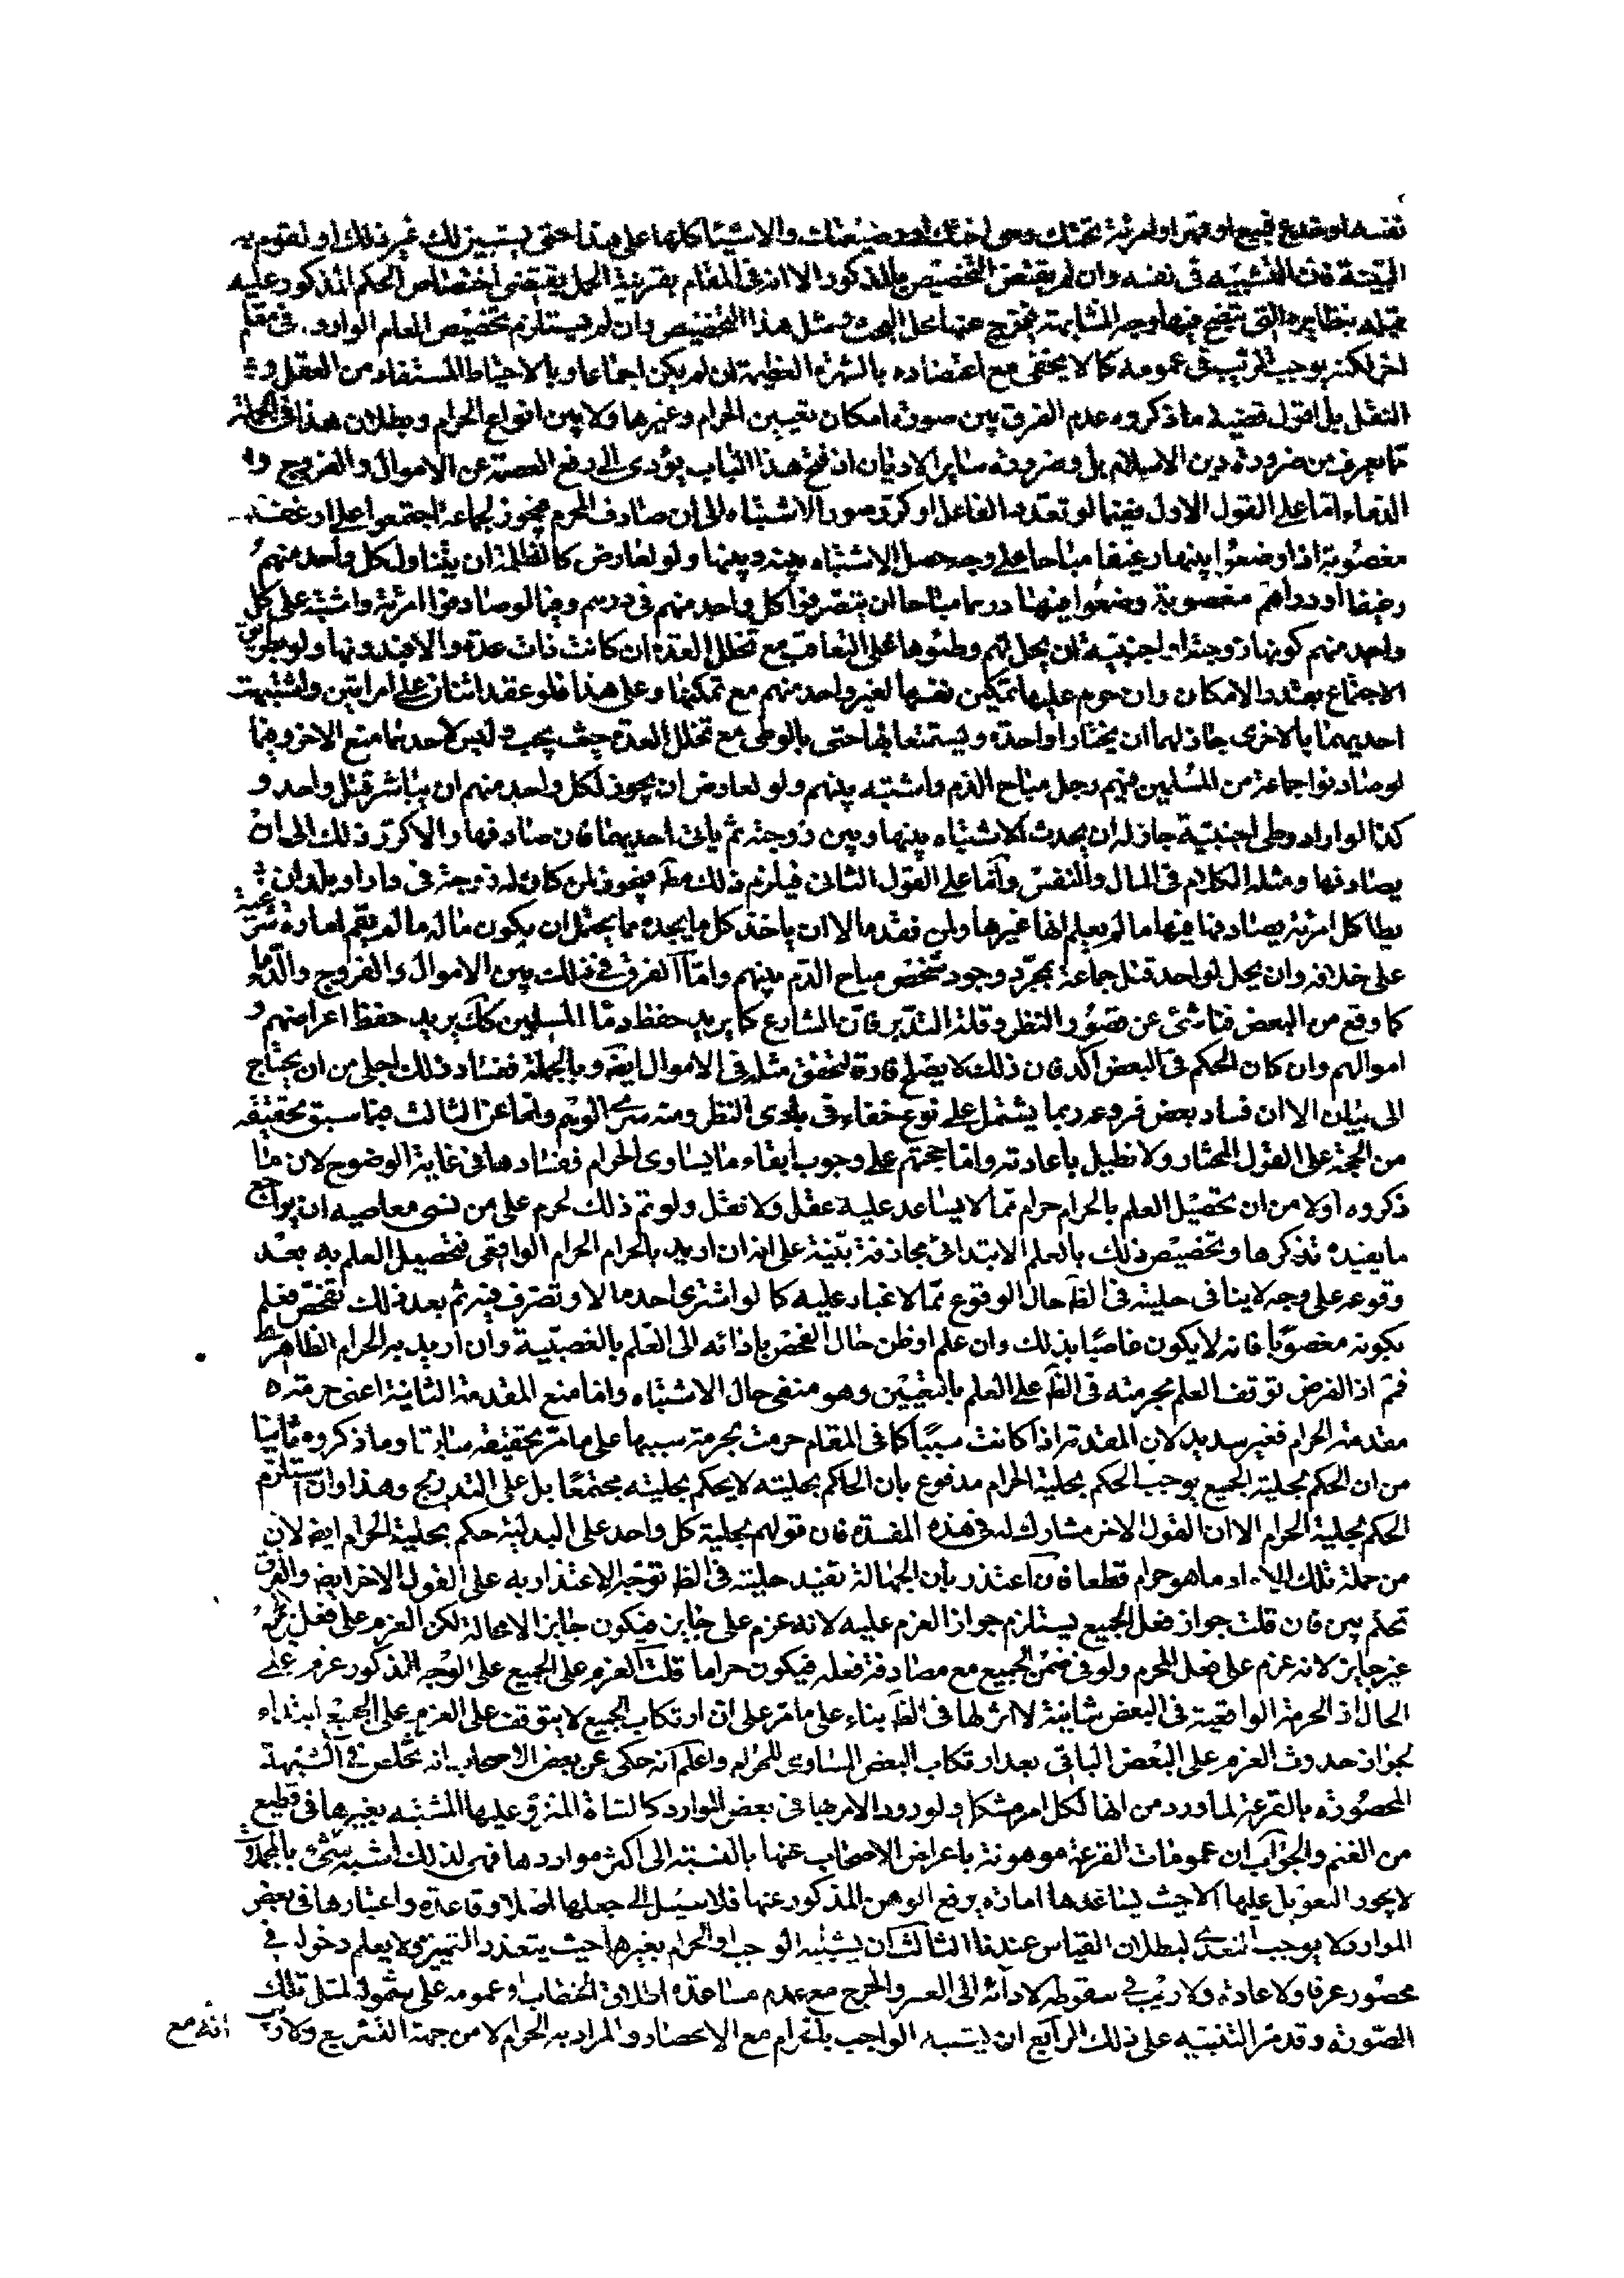 نفسه او خدع فبيع او قهر او امرئة تحتك وهى اختك او رضيعتك والاشياء كلها على هذا حتى يستبين لك غير ذلك او تقوم به
البينة فان التشبيه فى نفسه وان لم يقتض التخصيص بالمذكور الا انه فى المقام بقرينة الحمل يقتضى اختصاص الحكم المذكور عليه
بنظايره التى يتضح فيها وجه المشابهة فيخرج عنها محل البحث ومثل هذا التخصيص وان لم يستلزم تخصيص العام الوارد فى مقام
اخر لكنه يوجب الريب فى عمومه كما لا يخفى مع اعتضاده بالشهرة العظيمة ان لم يكن اجماعا وبالاحتياط المستفاد من العقل و
النقل بل اقول قضية ما ذكروه عدم الفرق بين صورة امكان تعيين الحرام وغيرها ولا بين انواع الحرام وبطلان هذا فى الجملة
مما يعرف من ضرورة دين الاسلام بل وضرورة ساير الاديان اذ فتح هذا الباب يؤدى الى رفع العصمة عن الاموال والفروج و
الدماء اما على القول الاول ففيما لو تعدد الفاعل او كرر صور الاشتباه الى ان صادف المحرم فيجوز لجماعة اجتمعوا على ارغفة
مغصوبة اذا وضعوا بينها رغيفا مباحا على وجه حصل الاشتباه بينه وبينها ولو لعارض كالظلمة ان يتناول كل واحد منهم
رغيفا او دراهم مغصوبة وضعوا فيها درهما مباحا ان يتصرفوا كل واحد منهم فى درهم وفيما لو صادفوا امرئة واشتبه على كل
واحد منهم كونها زوجته او اجنبية ان يحل لهم وطئوها على التعاقب مع تخلل العدة ان كانت ذات عدة والا فبدونها ولو بطريق
الاجتماع بقدر الامكان وان حرم عليها تمكين نفسها لغير واحد منهم مع تمكنها وعلى هذا فلو عقد اثنان على امرأتين واشتبهت
احديهما بالاخرى جاز لهما ان يختارا واحدة ويستمتعا بها حتى بالوطى مع تخلل العدة حيث يجب وليس لاحدهما منع الاخر وفيما
لو صادفوا جماعة من المسلمين فيهم رجل مباح الدم واشتبه بينهم ولو لعارض ان يجوز لكل واحد منهم ان يباشر قتل واحد و
كذا لو اراد وطى اجنبية جاز له ان يحدث الاشتباه بينها وبين زوجته ثم ياتى احديهما فان صادفها والا كرر ذلك الى ان
يصادفها ومثله الكلام فى المال والنفس واما على القول الثانى فيلزم ذلك مط فيجوز لمن كان له زوجة فى دار او بلد ان
يطا كل امرئة يصادفها فيها ما لم يعلم انها غيرها ولمن فقد مالا ان ياخذ كل ما يجده مما يحتمل ان يكون ماله ما لم يقم امارة شرعية
على خلافه وان يحل لواحد قتل جماعة بمجرد وجود شخص مباح الدم بينهم واما الفرق فى ذلك بين الاموال والفروج والدماء
كما وقع من البعض فناشئ عن قصور النظر وقلة التدبر فان الشارع كما يريد حفظ دماء المسلمين كك يريد حفظ اعراضهم و
اموالهم وان كان الحكم فى البعض اكد فان ذلك لا يصلح فارقا لتحقق مثله فى الاموال ايضا وبالجملة ففساد ذلك اجلى من ان يحتاج
الى بيان الا ان فساد بعض فروعه ربما يشتمل على نوع خفاء فى بادى النظر ومنه سرى الوهم واما عن الثالث فبما سبق تحقيقه
من الحجة على القول المختار ولا نطيل باعادته واما حجتهم على وجوب ابقاء ما يساوى الحرام ففسادها فى غاية الوضوح لان ما
ذكروه اولا من ان تحصيل العلم بالحرام حرام مما لا يساعد عليه عقل ولا نقل ولو تم ذلك لحرم على من نسى معاصيه ان يراجع
ما يفيده تذكرها وتخصيص ذلك بالعلم الابتدائى مجازفة بينة على انه ان اريد بالحرام الحرام الواقعى فتحصيل العلم به بعد
وقوعه على وجه لا ينافى حليته فى الظ حال الوقوع مما لا غبار عليه كما لو اشترى احد مالا وتصرف فيه ثم بعد ذلك تفحص فعلم
بكونه مغصوبا فانه لا يكون عاصيا بذلك وان علم او ظن حال الفحص بادائه الى العلم بالغصبية وان اريد به الحرام الظاهرى
فمم اذ الفرض توقف العلم بحرمته فى الظ على العلم بالتعيين وهو منفى حال الاشتباه واما منع المقدمة الثانية اعنى حرمة
مقدمة الحرام فغير سديد لان المقدمة اذا كانت سببا كما فى المقام حرمت بحرمة سببها على ما مر تحقيقه سابقا وما ذكروه ثانيا
من ان الحكم بحلية الجميع يوجب الحكم بحلية الحرام مدفوع بان الحاكم بحليته لا يحكم بحليته مجتمعا بل على التدريج وهذا وان استلزم
الحكم بحلية الحرام الا ان القول الاخر مشارك له فى هذه المفسدة فان قولهم بحلية كل واحد على البدلية حكم بحلية الحرام ايضا لان
من جملة تلك الاحاد ما هو حرام قطعا فان اعتذر بان الجهالة تفيد حليته فى الظ توجه الاعتذار به على القول الاخر ايضا والفرق
تحكم بين فان قلت جواز فعل الجميع يستلزم جواز العزم عليه لانه عزم على جايز فيكون جايزا لا محالة لكن العزم على فعل الجميع
غير جايز لانه عزم على فعل المحرم ولو فى ضمن الجميع مع مصادفة فعله فيكون حراما قلت العزم على الجميع على الوجه المذكور عزم على
الحال اذ الحرمة الواقعية فى البعض شانية لا اثر لها فى الظ بناء على ما مر على ان ارتكاب الجميع لا يتوقف على العزم على الجميع ابتداء
لجواز حدوث العزم على البعض الباقى بعد ارتكاب البعض المساوى للحرام واعلم انه حكى عن بعض الاصحاب انه تخلص فى الشبهة
المحصورة بالقرعة لما ورد من انها لكل امر مشكل ولورود الامر بها فى بعض الموارد كالشاة المنزو عليها المشتبه بغيرها فى قطيع
من الغنم والجواب ان عمومات القرعة موهونة باعراض الاصحاب عنها بالنسبة الى اكثر مواردها فهى لذلك اشبه شئ بالمجمل
لا يجوز التعويل عليها الا حيث يساعدها امارة يرفع الوهن المذكور عنها فلا سبيل الى جعلها اصلا وقاعدة واعتبارها فى بعض
الموارد لا يوجب التعدى لبطلان القياس عندنا الثالث ان يشتبه الواجب او الحرام بغيرها حيث يتعذر التمييز ولا يعلم دخوله فى
محصور عرفا ولا عادة ولا ريب فى سقوطه لادائه الى العسر والحرج مع عدم مساعدة اطلاق الخطاب وعمومه على شموله لمثل تلك
الصورة وقد مر التنبيه على ذلك الرابع ان يشتبه الواجب بالحرام مع الانحصار والمراد به الحرام لا من جهة التشريع ولا ريب
انه مع